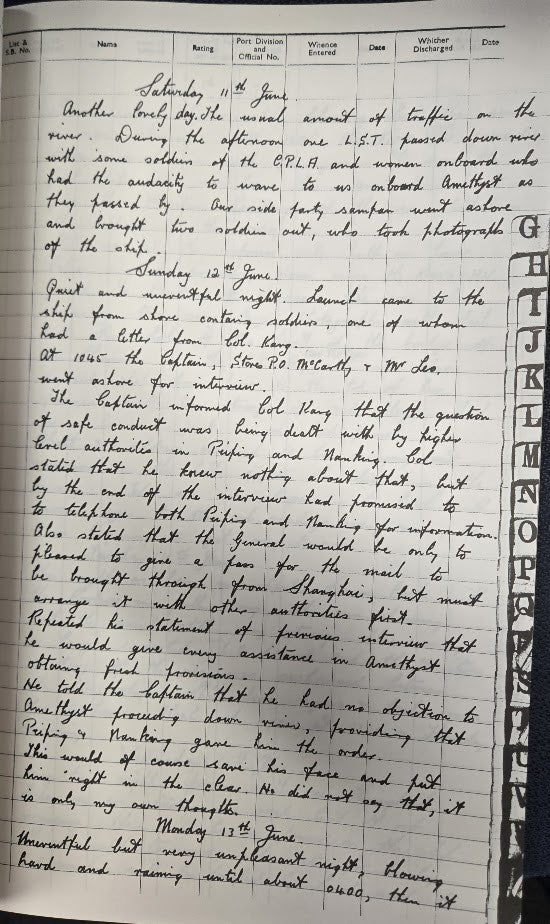 List & S.B. No.
Name
Rating
Port Division and Official No.
Whence Entered
Date
Whither Discharged
Date
Saturday 11th June.
Another lovely day. The usual amount of traffic on the
river. During the afternoon one L.S.T. passed down river
with some soldiers of the C.P.L.A. and women onboard who
had the audacity to wave to us onboard Amethyst as
they passed by. Our side party sampan went ashore
and brought two soldiers out, who took photographs
of the ship.
Sunday 12th June.
Quiet and uneventful night. Launch came to the
ship from shore containg soldiers, one of whom
had a letter from Col. Kang.
At 1045 the Captain, Stores P.O. McCarthy & Mr Leo,
went ashore for interview.
The Captain informed Col Kang that the question
of safe conduct was being dealt with by higher
level authorites in Peiping and Nanking. Col
stated that he knew nothing about that, but
by the end of the interview had promised to
to telephone both Peiping and Nanking for information.
Also stated that the General would be only to
pleased to give a pass for the mail to
be brought through from Shanghai, but must
arrange it with other authorities first.
Repeated his statement of previous interview that
he would give every assistance in Amethyst
obtaing fresh provisions.
He told the Captain that he had no objection to
Amethyst proceedg down river, providing that
Peiping & Nanking gave him the order.
This would of course save his face and put
him right in the clear. He did not say that, it
is only my own thoughts.
Monday 13th June
Uneventful but very unpleasant night, blowing
hard and raining until about 0400, then it
G
H
I
J
K
L
M
N
O
P
Q
R
S
T
U
V